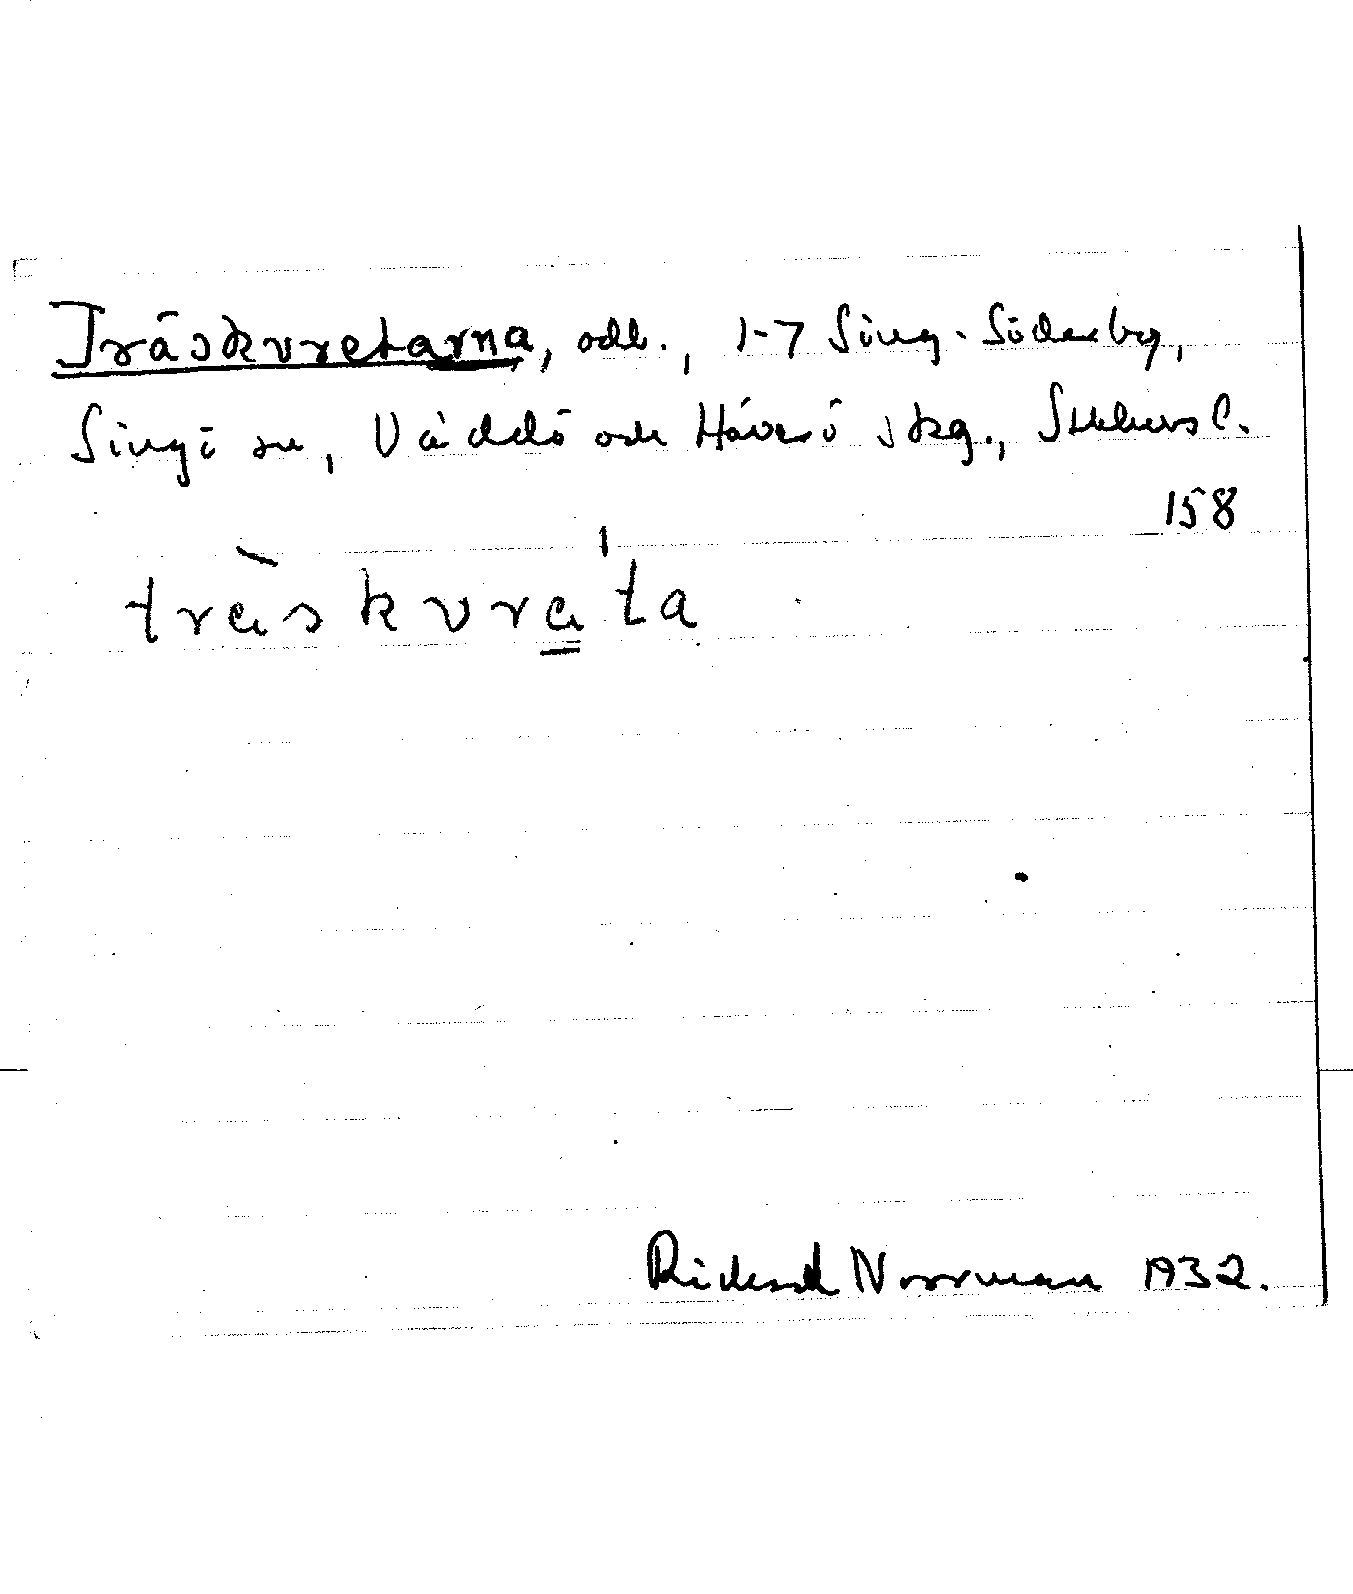 Träskvretarna, odl., 1-7 Sing-Söderby,
Singö sn, Väddö och Häverö skg., Sthlms l.
158
träskvräta
Rickard Norrman 1932.